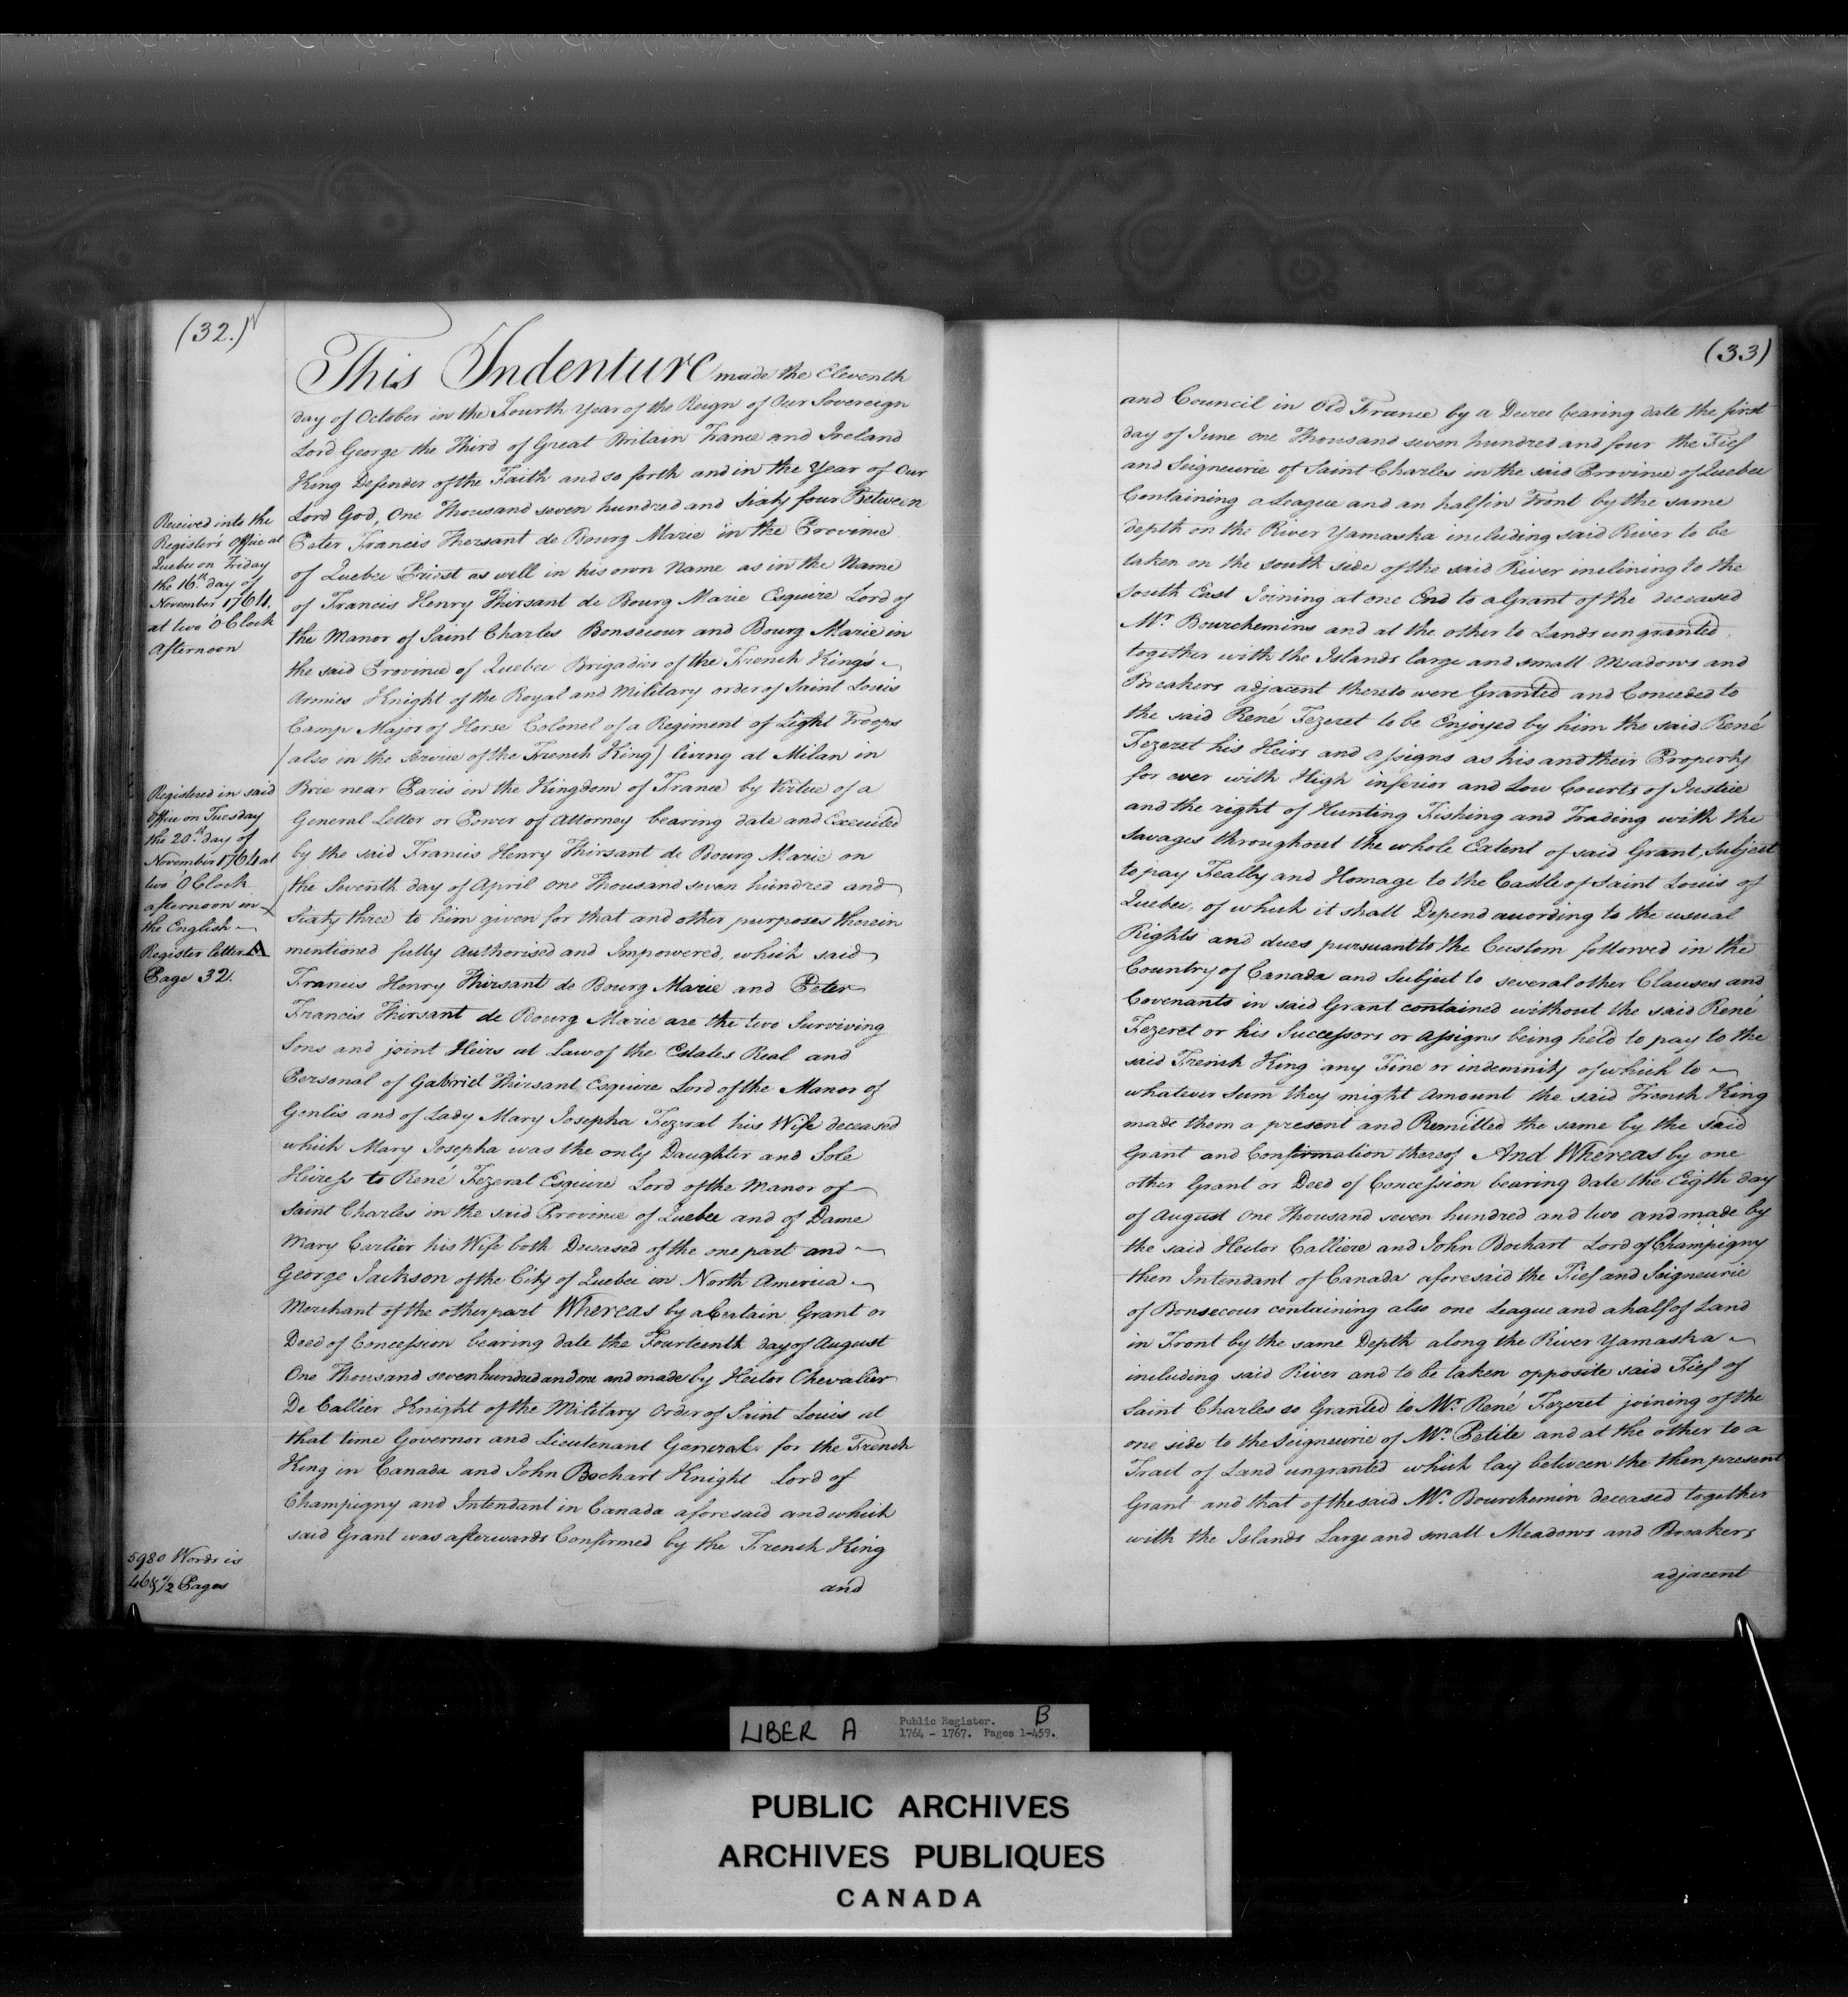 (32.)
This Indenture made the Eleventh
day of October in the Fourth Year of the Reign of Our Sovereign
Lord George the Third of Great Britain France and Ireland
King Defender of the Faith and so forth and in the Year of Our
Lord God, One Thousand seven hundred and Sixty four Between
Peter Francis Thersant de Bourg Marie in the Province
of Quebec Priest as well in his own Name as in the Name
of Francis Henry Thirsant de Bourg Marie Esquire Lord of
the Manor of Saint Charles Bonsecour and Bourg Marie in
the said Province of Quebec Brigadier of the French King's
Armies Knight of the Royal and Military order of Saint Louis
Camp Major of Horse Colonel of a Regiment of Light Troops
(also in the Service of the French King) living at Milan in
Brie near Paris in the Kingdom of France by Virtue of a
General Letter or Power of Attorney bearing date and Executed
by the said Francis Henry Thirsant de Bourg Marie on
the Seventh day of April one Thousand seven hundred and
Sixty three to him given for that and other purposes therein
mentioned fully Authorised and Impowered, which said
Francis Henry Thirsant de Bourg Marie and Peter
Francis Thirsant de Bourg Marie are the two Surviving
Sons and joint Heirs at Law of the Estates Real and
Personal of Gabriel Thirsant Esquire Lord of the Manor of
Genlis and of Lady Mary Josepha Fezerat his Wife deceased
which Mary Josepha was the only Daughter and Sole
Heiress to René Fezerat Esquire Lord of the Manor of
Saint Charles in the said Province of Quebec and of Dame
Mary Carlier his Wife both Deceased of the one part and
George Jackson of the City of Quebec in North America
Merchant of the other part Whereas by a Certain Grant or
Deed of Concession bearing date the Fourteenth day of August
One Thousand seven hundred and one and made by Hector Chevalier
De Callier Knight of the Military Order of Saint Louis at
that time Governor and Lieutenant General for the French
King in Canada and John Bochart Knight Lord of
Champigny and Intendant in Canada aforesaid and which
said Grant was afterwards Confirmed by the French King
and
Received into the
Register's Office at
Quebec on Friday
the 16th day of
November 1764.
at two O'Clock
Afternoon
Registered in said
Office on Tuesday
the 20th day of
November 1764 at
two O'Clock
afternoon in
the English
Register letter A
Page 32.
5980 Words is
Pages
(33)
and Council in Old France by a Decree bearing date the first
day of June one Thousand seven hundred and four the Fief
and Seigneurie of Saint Charles in the said Province of Quebec
Containing a League and an half in Front by the same
depth on the River Yamaska including said River to be
taken on the south side of the said River inclining to the
South East Joining at one End to a Grant of the deceased
Mr. Bourchemins and at the other to Lands ungranted,
together with the Islands large and small Meadows and
Breakers adjacent thereto were Granted and Conceded to
the said René Fezeret to be Enjoyed by him the said René
Fezeret his Heirs and Assigns as his and their Property
for ever with High inferior and Low Courts of Justice
and the right of Hunting Fishing and Trading with the
Savages throughout the whole Extent of said Grant, Subject
to pay Fealty and Homage to the Castle of Saint Louis of
Quebec, of which it shall Depend according to the usual
Rights and dues pursuant to the Custom followed in the
Country of Canada and Subject to several other Clauses and
Covenants in said Grant contained without the said René
Fezeret or his Successors or Assigns being held to pay to the
said French King any Fine or indemnity of which to
whatever Sum they might Amount the said French King
made them a present and Remitted the same by the said
Grant and Confirmation thereof And Whereas by one
other Grant or Deed of Concession bearing date the Eigth day
of August One Thousand seven hundred and two and made by
the said Hector Calliere and John Bochart Lord of Champigny
then Intendant of Canada aforesaid the Fief and Seigneurie
of Bonsecour containing also one League and a half of Land
in Front by the same Depth along the River Yamaska
including said River and to be taken opposite said Fief of
Saint Charles so Granted to Mr. René Fezeret joining of the
one side to the Seigneurie of Mr. Petite and at the other to a
Tract of Land ungranted which lay between the then present
Grant and that of the said Mr. Bourchemin deceased together
with the Islands Large and small Meadows and Breakers
adjacent
LIBER A
Public Register. B
1764 - 1767. Pages 1-459.
PUBLIC ARCHIVES
ARCHIVES PUBLIQUES
CANADA